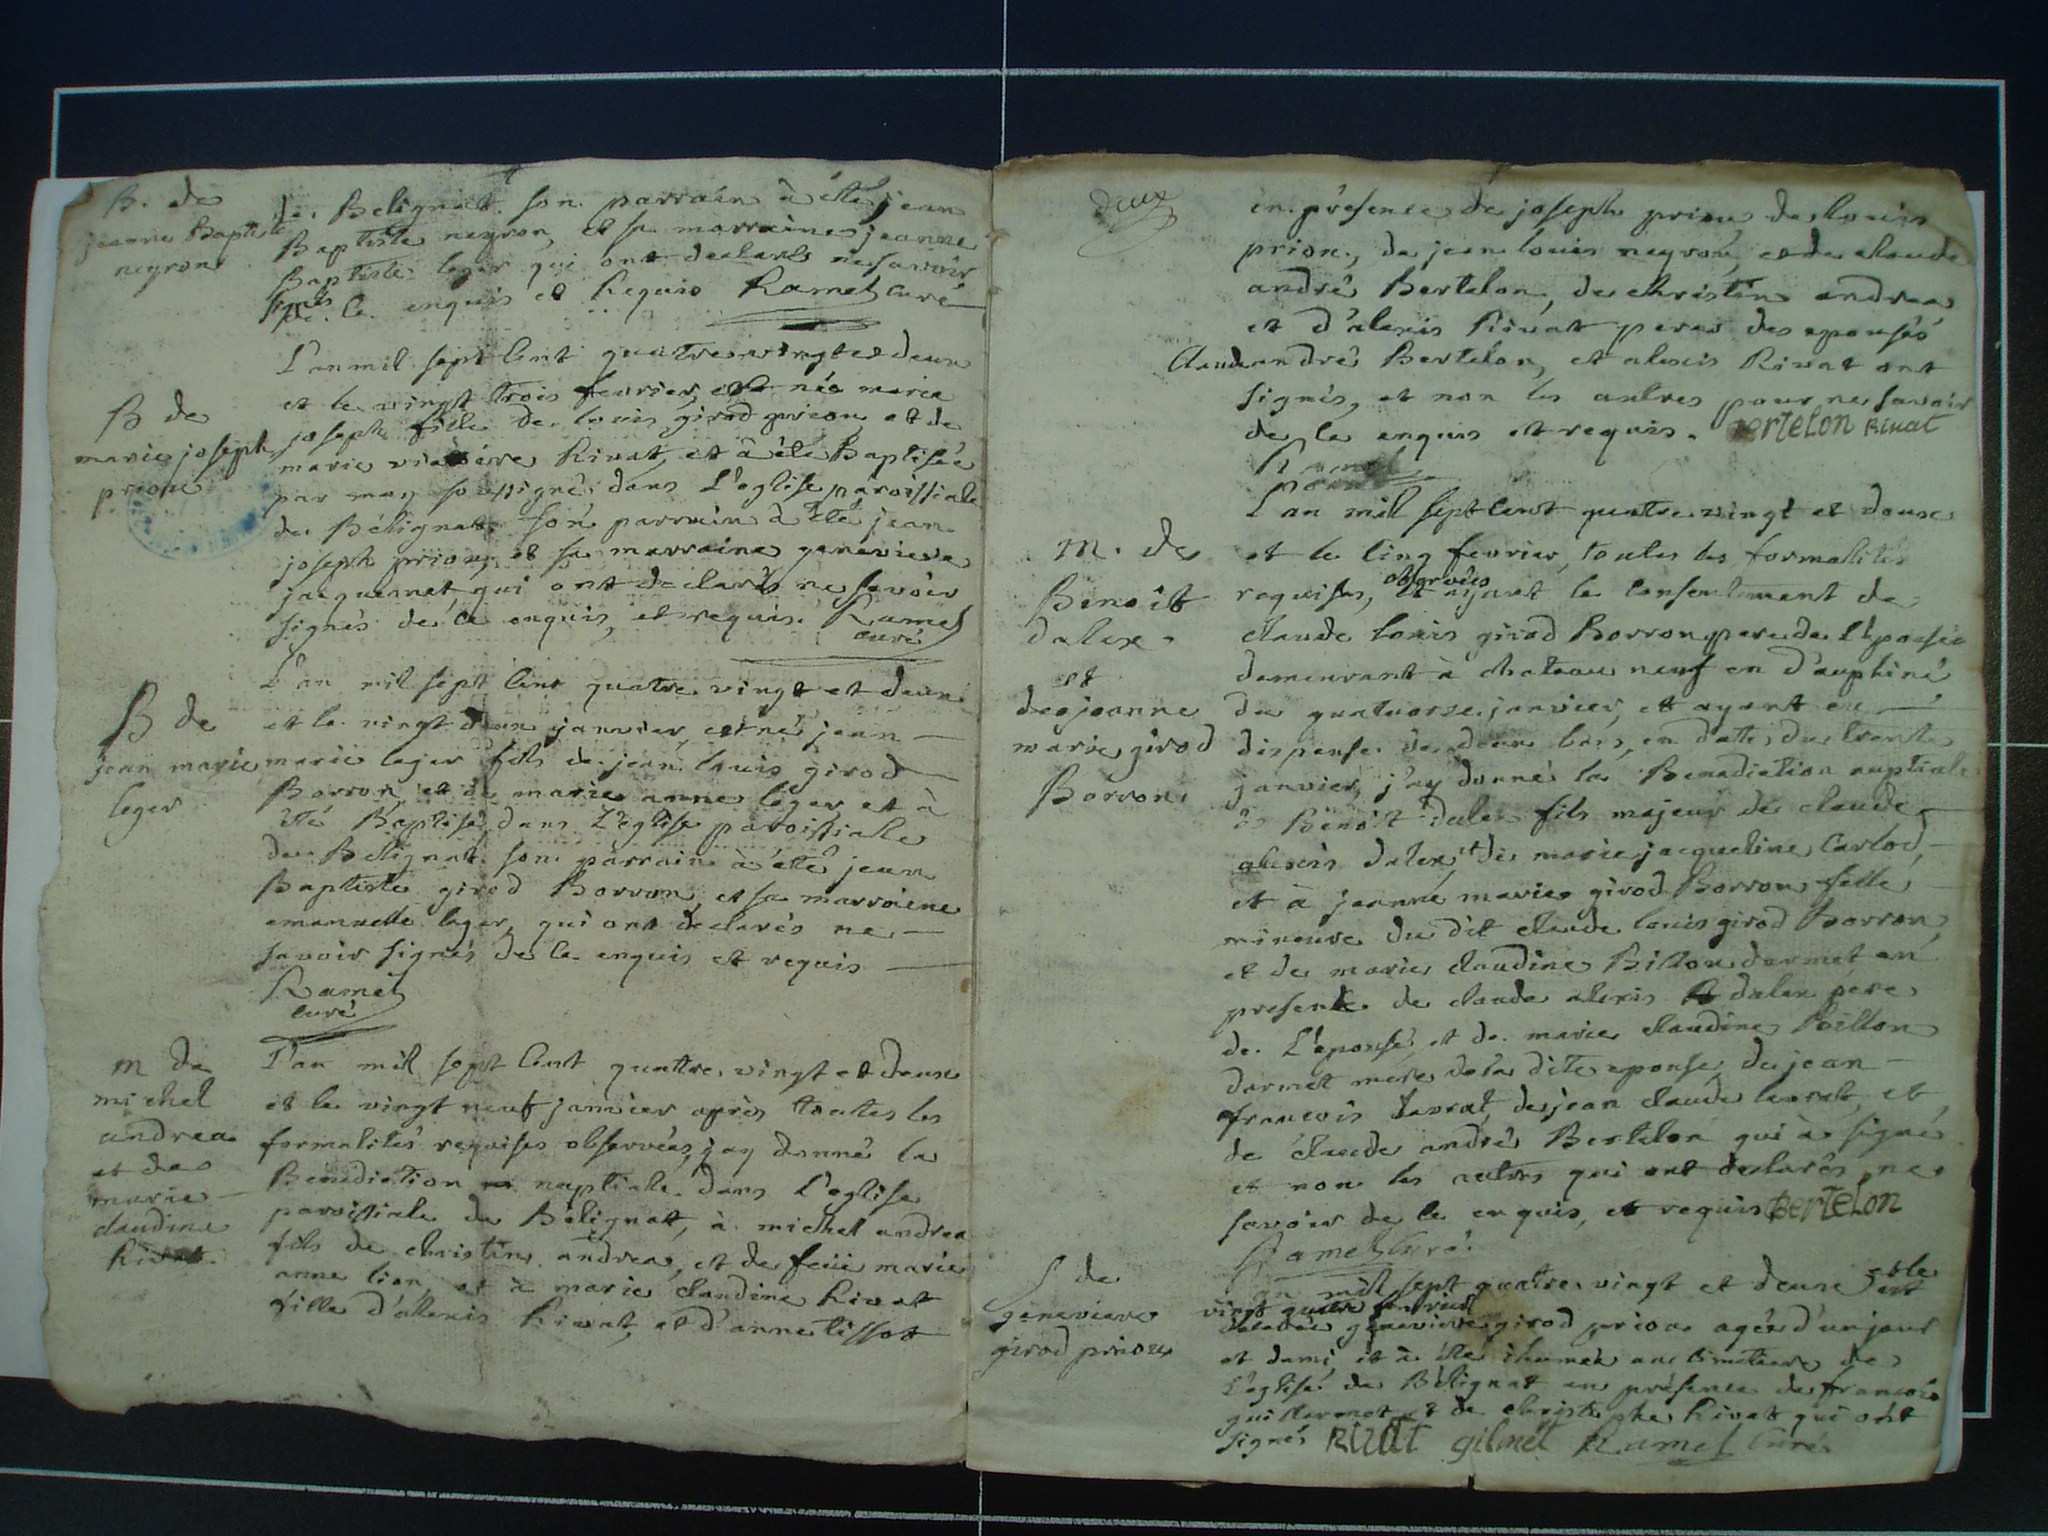 B. de
jeanne Baptiste
negron
de Belignat. son parrain à étté jean
Baptiste negron, et sa marraine jeanne
Baptiste leger qui ont declarés ne savoir
signés de ce enquis et Requis Ramel curé
B de
marie joseph
prion
L'an mil sept cent quatre vingt et deux
et le vingt trois fevrier, est née marie
joseph fille de louis girod prion et de
marie victoire Rivat, et à été Baptisée
par moy soussigné dans L'eglise paroissiale
de Bélignat son parrain à été jean
joseph prion, et sa marraine genevieve
jacquemet, qui ont declarés ne savoir
signés de ce enquis, et requis. Ramel
curé
B de
jean marie
leger
L'an mil sept cent quatre vingt et deux
et le vingt deux janvier, est né jean
marie leger fils de jean louis girod
Borron et de marie anne leger et à
été Baptisé, dans L'eglise paroissiale
de Belignat. son parrain à étté jean
Baptiste girod Borron, et sa marraine
emanuelle leger, qui ont declarés ne
savoir signés de ce enquis et requis
Ramel
curé
m de
michel
andrea
et de
marie
claudine
Rivat.
L'an mil sept cent quattre vingt et deux
et le vingt neuf janvier après toutes les
formalités requises observées, jay donné la
Benediction nuptiale dans L'eglise
paroissiale de Bélignat, à michel andrea
fils de christin andrea, et de feüe marie
anne lion, et à marie claudine Rivat
fille d'allexis Rivat, et d'anne tissot
deux
en présence de joseph prion de louis
prion, de jean louis negron, et de claude
andré Bertelon, de christin andrea
et d'alexis Rivat peres des epousés
Claude andré Bertelon, et alexis Rivat ont
signés, et non les autres pour ne savoir
de ce enquis et requis. Bertelon Rivat
Ramel
m. de
Benoit
dalex
et
de jeanne
marie girod
Borron
L'an mil sept cent quatre vingt et deux
et le cinq fevrier, toutes les formallités
requises, observées et ayant le consentement de
claude louis girod Borron pere de L'epousée
demeurant à chateau neuf en d'auphiné
du quatuorze janvier, et ayant eu
dispense de deux bans, en date du trente
janvier, j'ay donné la Benediction nuptiale
à Benoit dalex fils majeur de claude
alexis dalex, et de marie jacqueline Carlod,
et à jeanne marie girod Borron fille
mineure du dit claude louis girod Borron,
et de marie claudine Billon dermet en
presence de claude alexis dalex pere
de L'epousé, et de marie claudine Billon
dermet mere de la dite epouse, de jean
francois Javrat, de jean claude Javrat, et
de claude andré Bertelon qui à signé
et non les autres qui ont declarés ne
savoir de ce enquis, et requis Bertelon
Ramel curé.
S de
genevieve
girod prion
L'an mil sept quatre vingt et deux et le
vingt quatre fevrier est
decedée genevieve girod prion agée d'un jour
et demi, et à été ihumée au cimetiere de
L'eglise de Bélignat en présence de francois
guillermet et de christophe Rivat qui ont
signés Rivat gilmet Ramel curé.